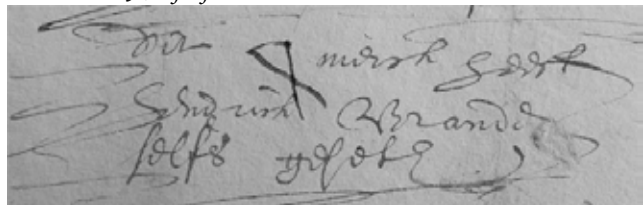 dit merck heeft
Hendrick Brandt
selfs geset